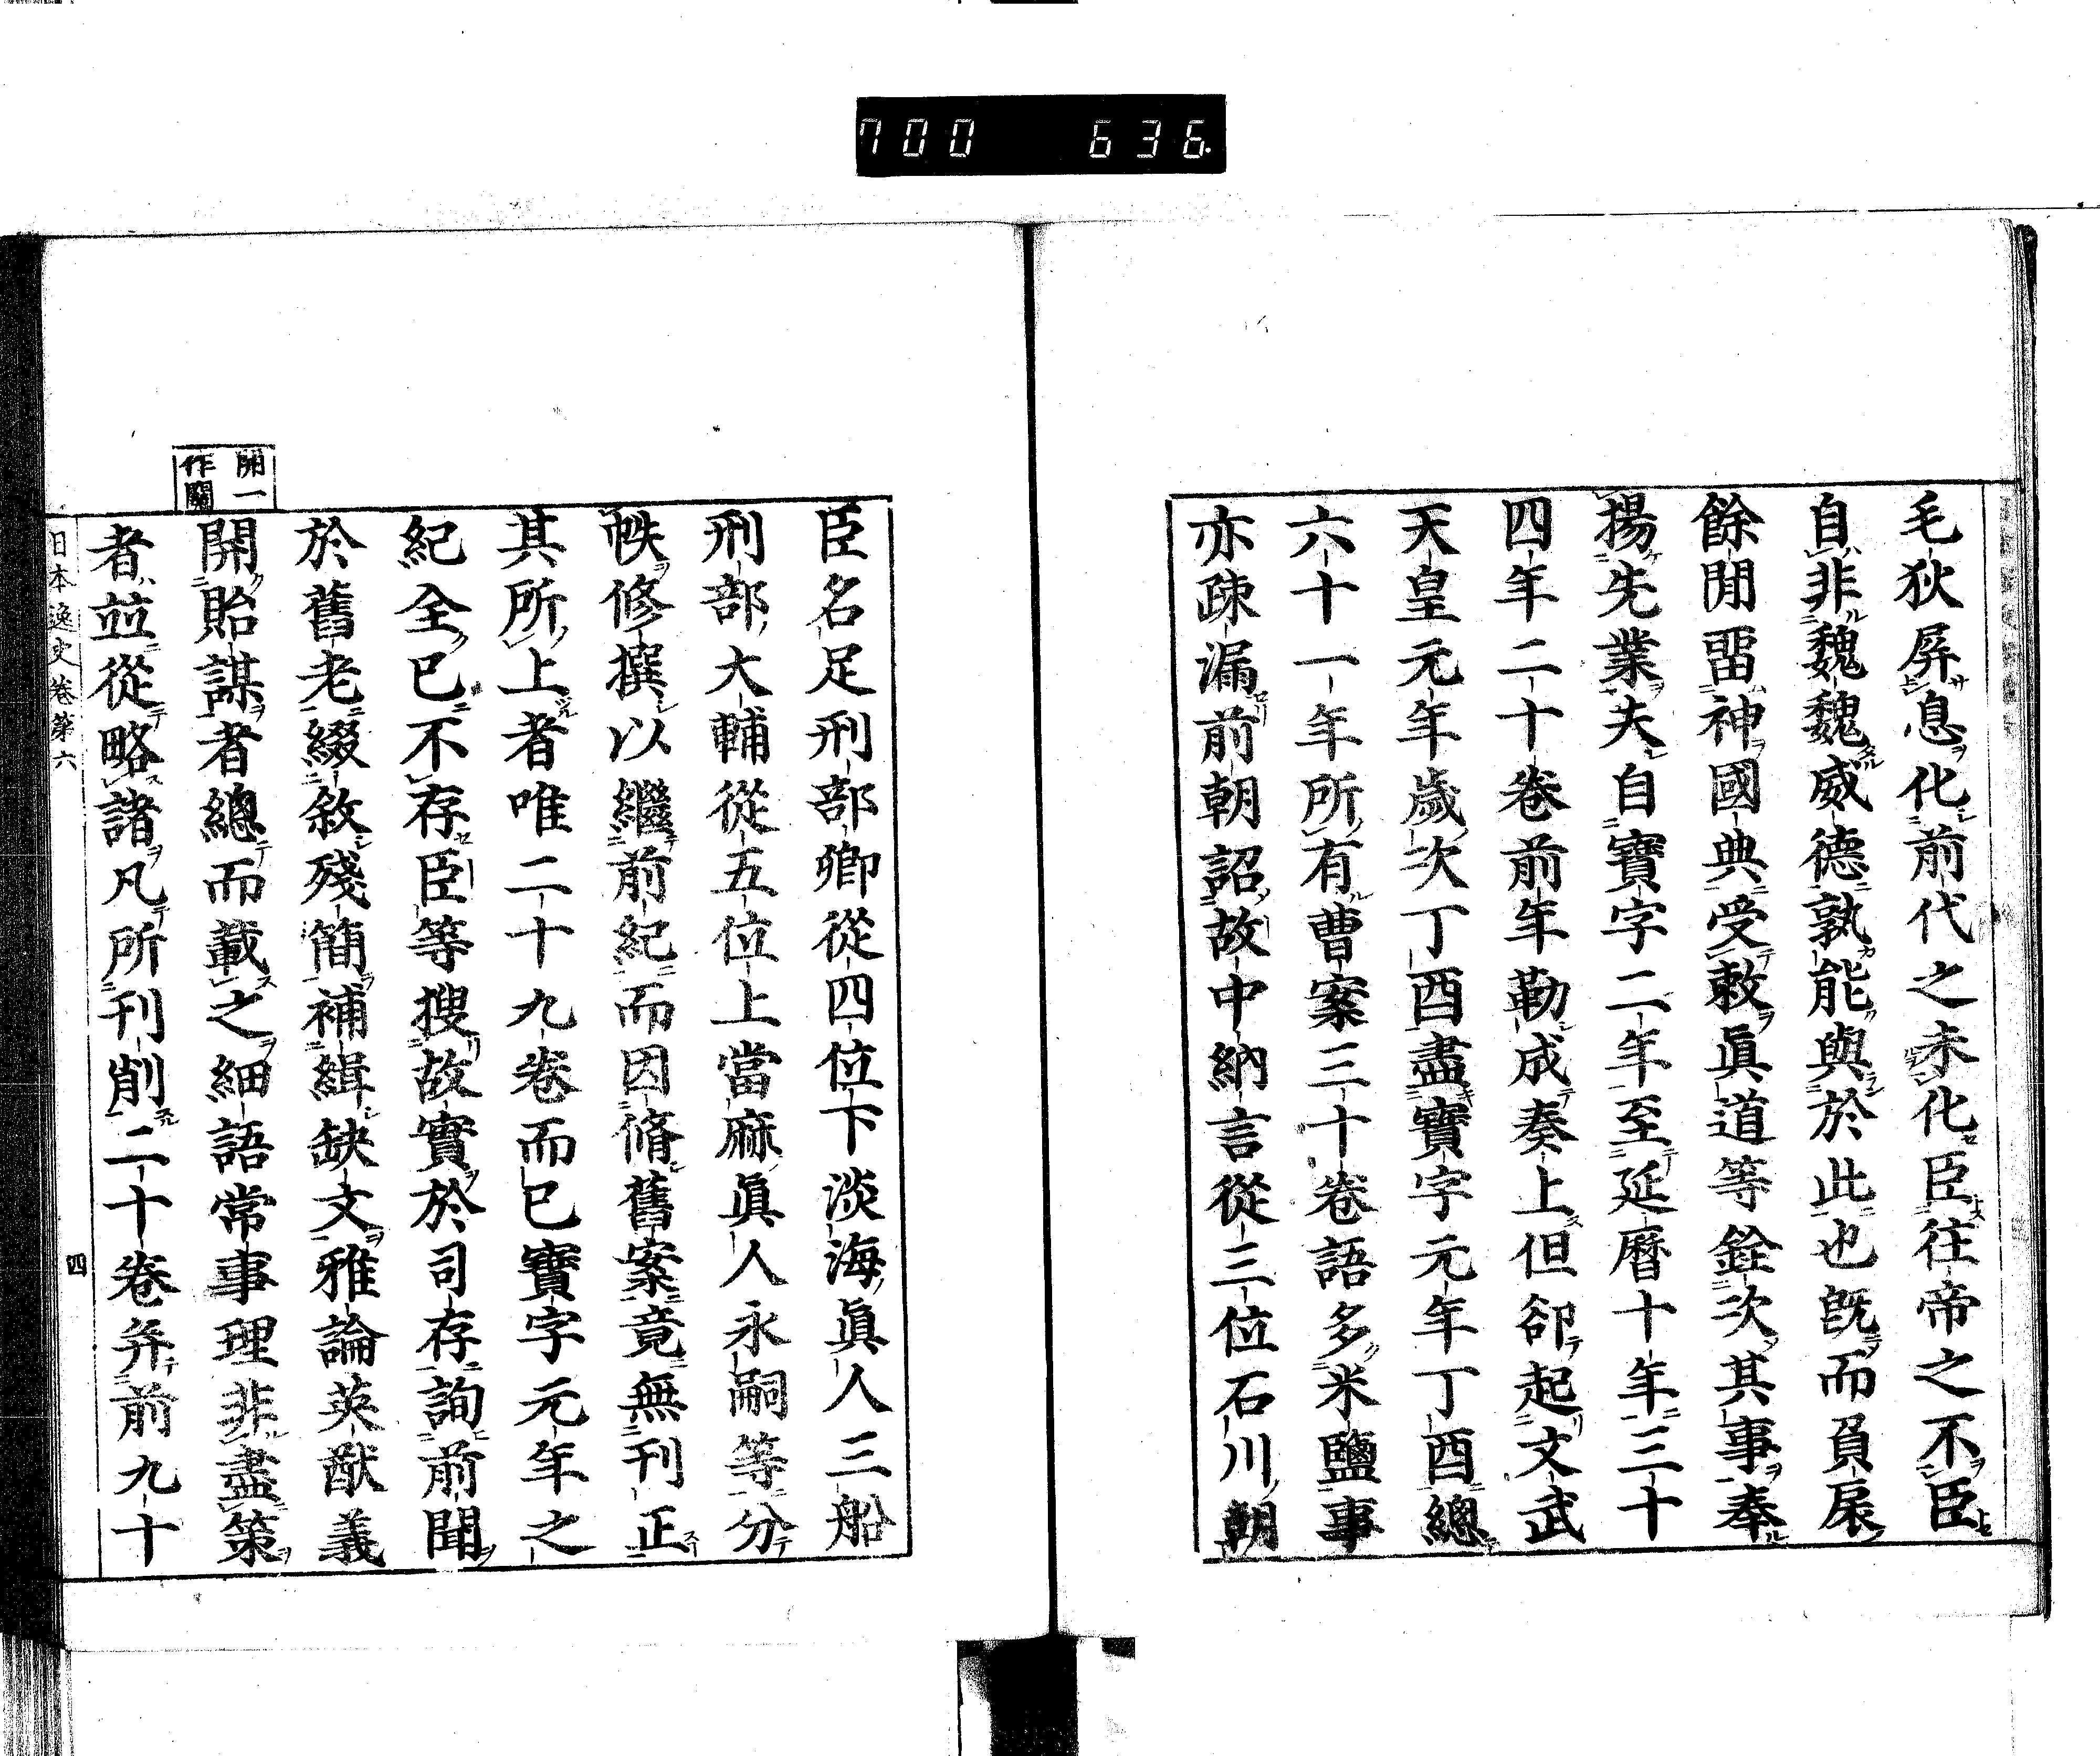 700 636
毛狄屏息化前代之未化臣往帝之不臣
自非魏魏威德孰能與於此也旣而負扆
餘閒畱神國典受敕眞道等銓次其事奉
揚先業夫自寶字二年至延曆十年三十
四年二十卷前年勒成奏上但卻起文武
天皇元年歲次丁酉盡寶字元年丁酉總
六十一年所有曹案三十卷語多米鹽事
亦疎漏前朝詔故中納言從三位石川朝
臣名足刑部卿從四位下淡海眞人三船
刑部大輔從五位上當麻眞人永嗣等分
帙修撰以繼前紀而因脩舊案竟無刊正
其所上者唯二十九卷而已寶字元年之
紀全已不存臣等搜故實於司存詢前聞
於舊老綴敘殘簡補緝缺文雅論英猷義
開貽謀者總而載之細語常事理非盡策
者並從略諸凡所刊削二十卷并前九十
開一
作關
日本逸史卷第六
四